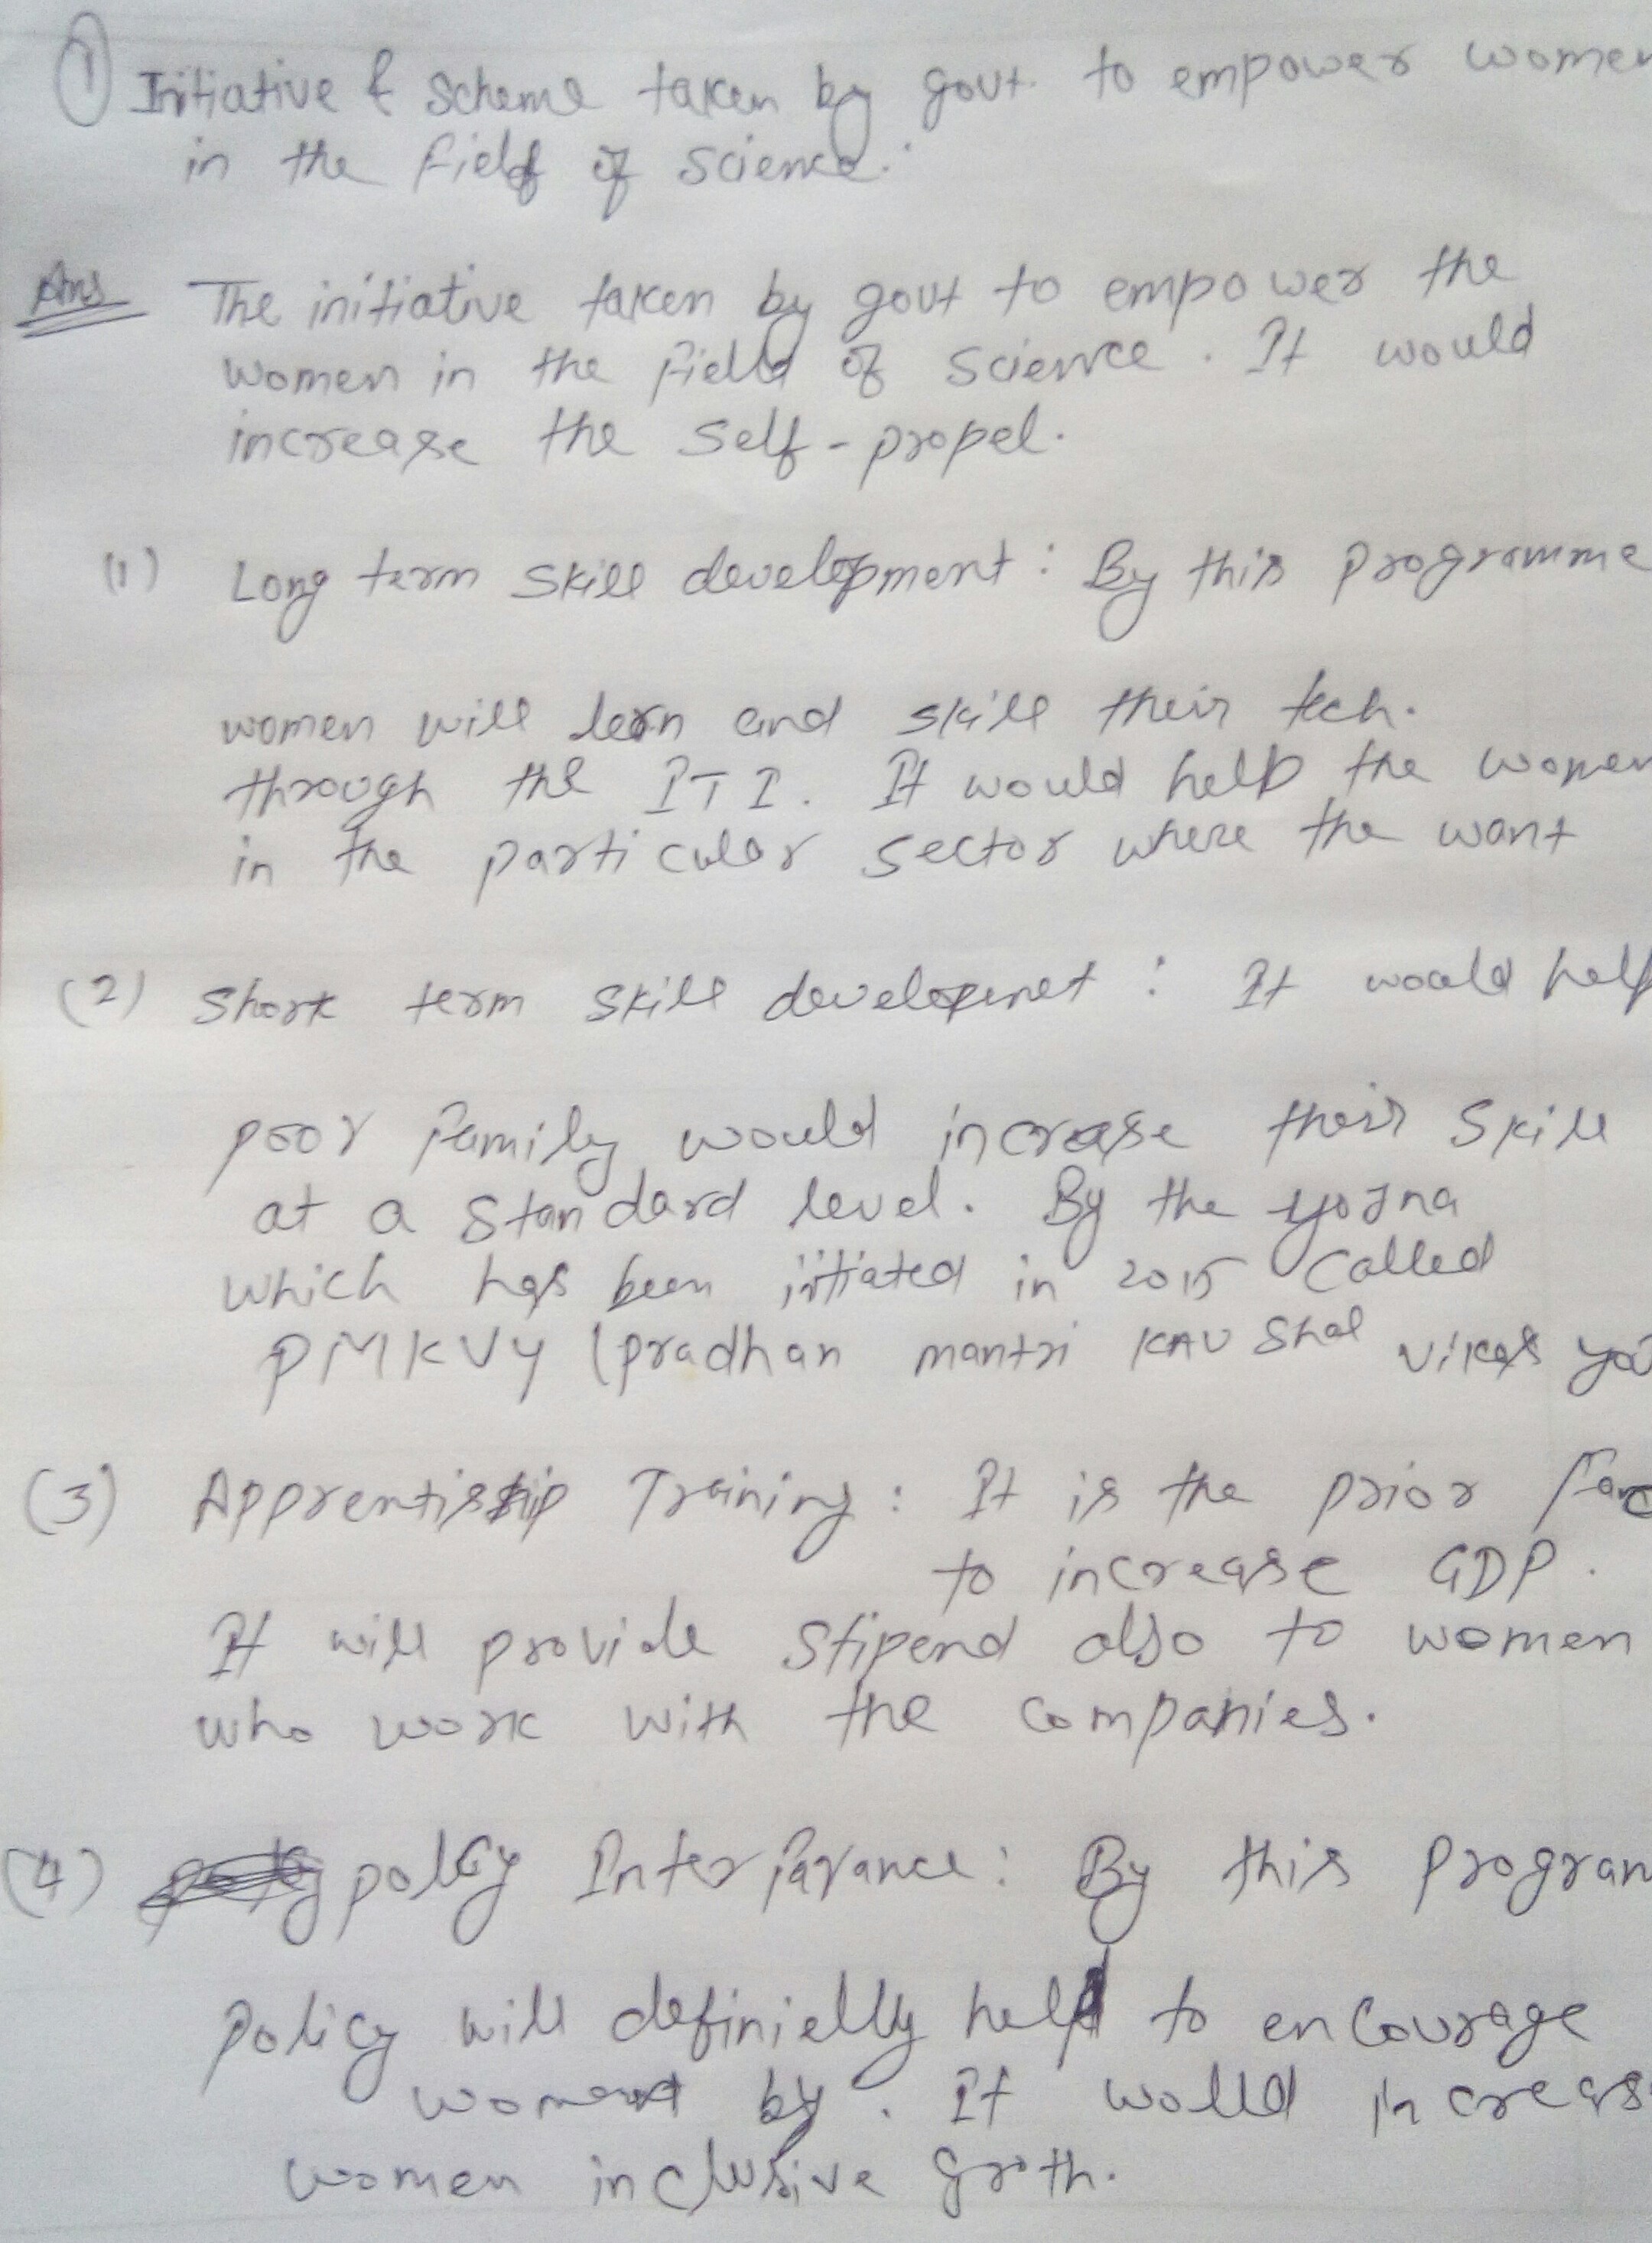 ① Initiative & Scheme taken by govt. to empower women
in the field of Science.
Ans The initiative taken by govt to empower the
women in the field of Science. It would
increase the self-propel.
(1) Long term skill development: By this programme
women will lern and skill their tech.
through the ITI. It would help the women
in the particular sector where the want
(2) Short term skill developmet: It would help
poor family would increase their skill
at a standard level. By the yojna
which has been initiated in 2015 called
PMKVY (pradhan mantri KAUShal vikas yo
(3) Apprentiship Training: It is the prior
to increase GDP.
It will provide stipend also to women
who work with the companies.
(4) policy Interfarance: By this program
policy will definielly help to encourage
women by. It would increas
women inclusive groth.